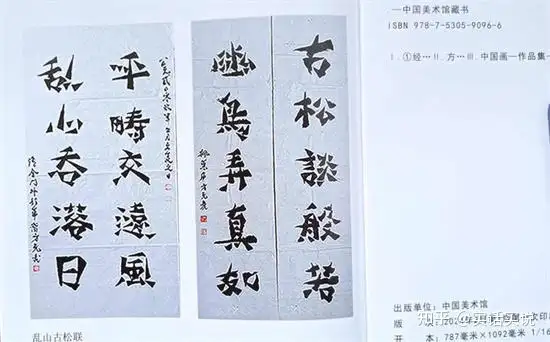 古松談般若
幽鳥弄真如
平疇交遠風
乱山吞落日
乱山古松联
—中国美术馆藏书
ISBN 978-7-5305-9096-6
Ⅰ.①经… Ⅱ.方… Ⅲ.中国画—作品集—
出版单位：中国美术馆
版
开 本：787毫米×1092毫米 1/16
知乎 @实话实说